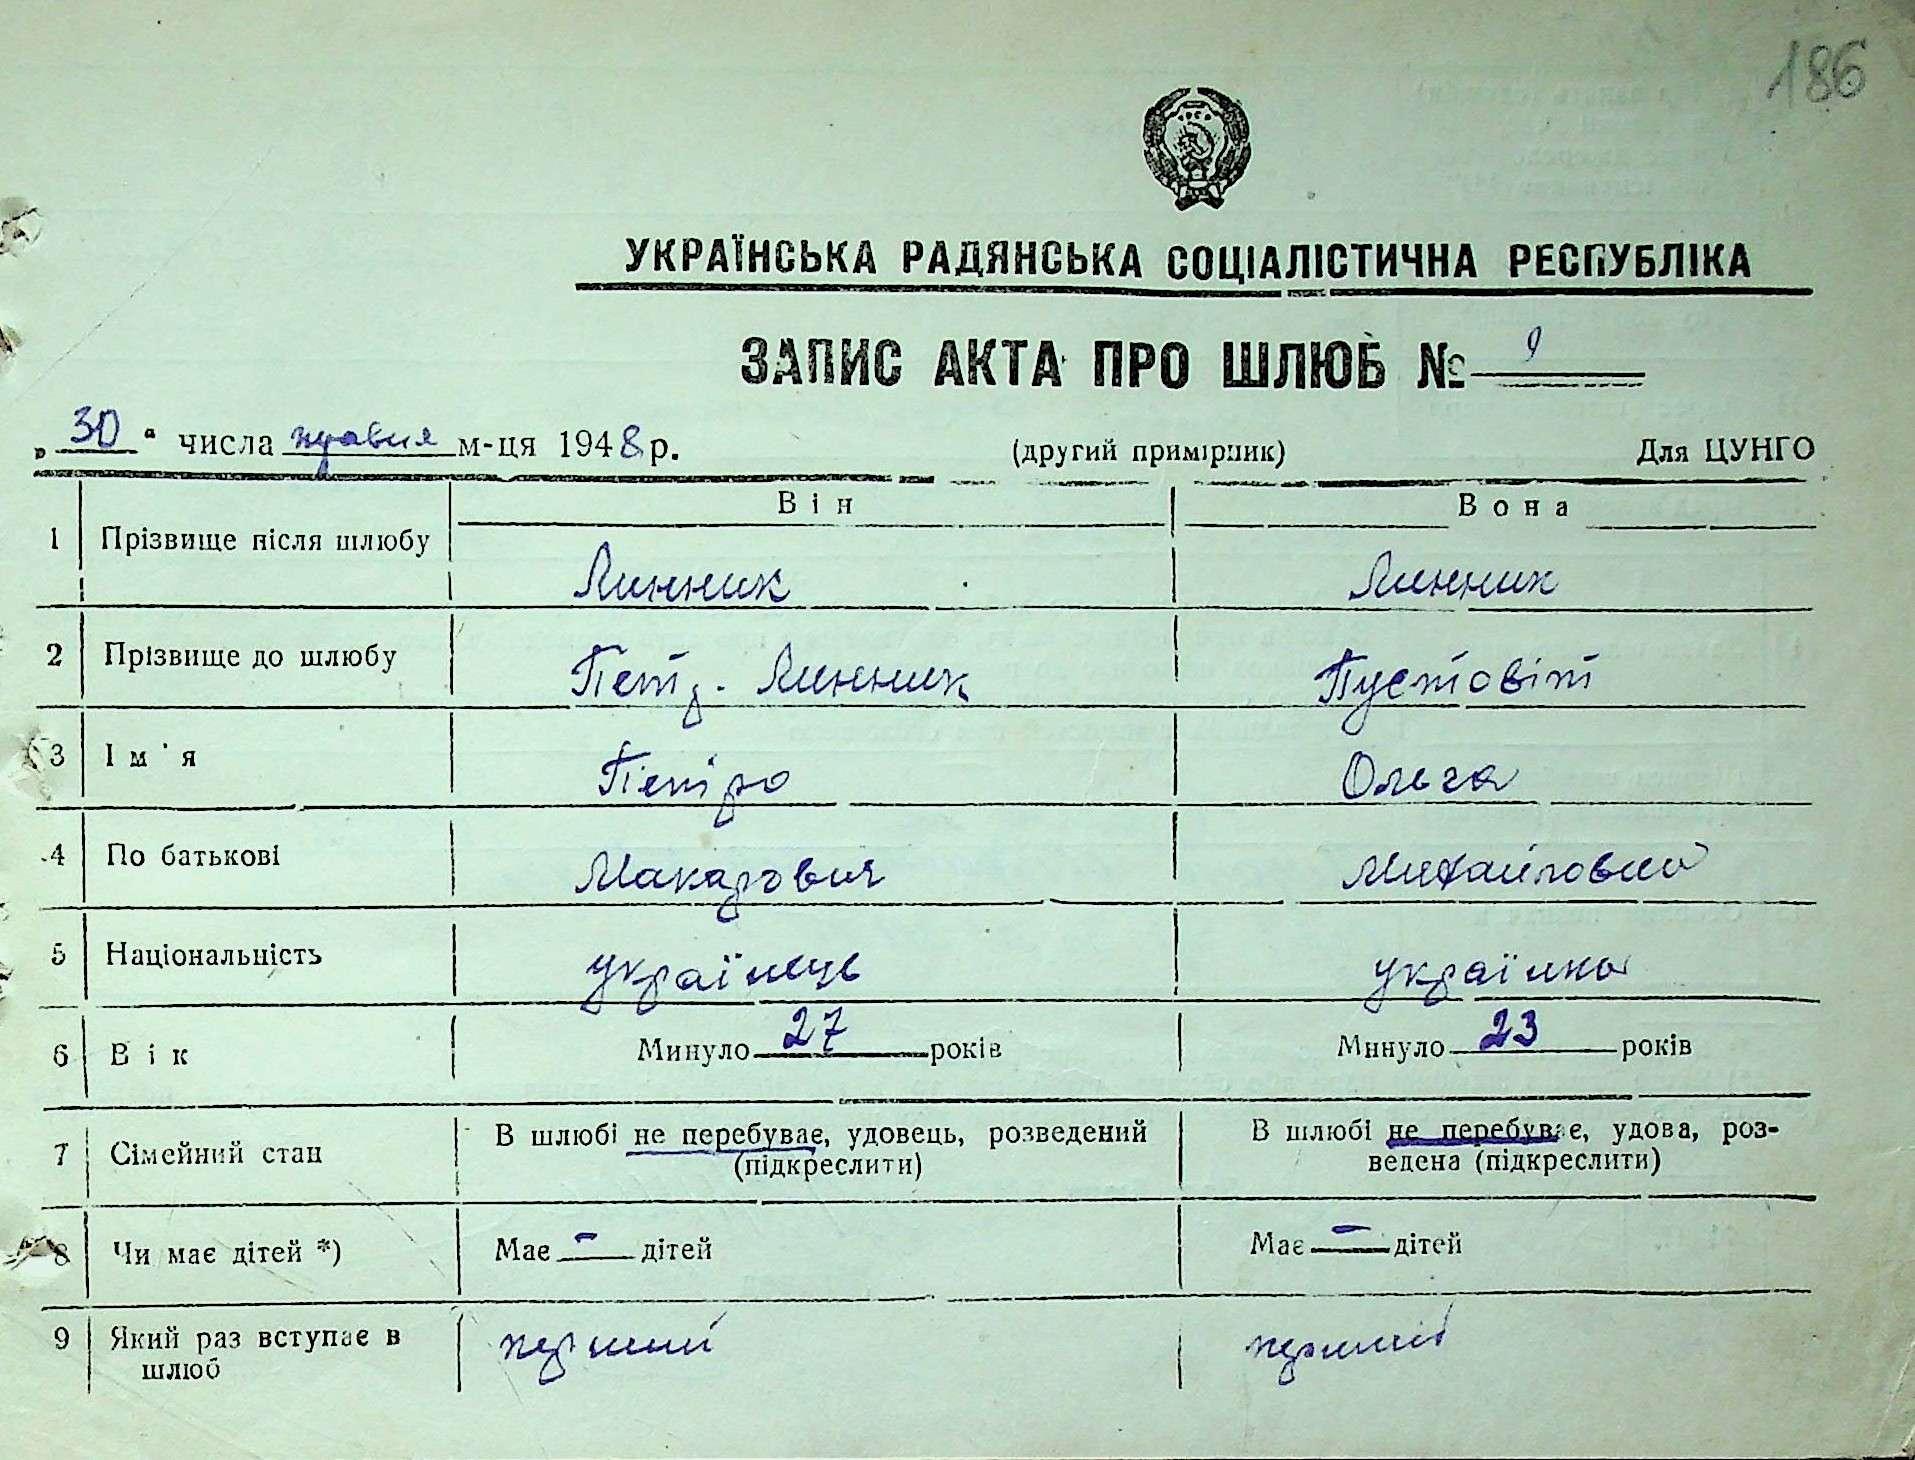 186
УКРАЇНСЬКА РАДЯНСЬКА СОЦІАЛІСТИЧНА РЕСПУБЛІКА
ЗАПИС АКТА ПРО ШЛЮБ № 9
„30“ числа травня м-ця 1948 р. (другий примірник) Для ЦУНГО
Він Вона
1 Прізвище після шлюбу Линник Линник
2 Прізвище до шлюбу Петр. Линник Пустовіт
3 Ім'я Петро Ольга
4 По батькові Макарович Михайловна
5 Національність українець українка
6 Вік Минуло 27 років Минуло 23 років
7 Сімейний стан В шлюбі не перебуває, удовець, розведений (підкреслити) В шлюбі не перебуває, удова, роз-
ведена (підкреслити)
8 Чи має дітей *) Має – дітей Має – дітей
9 Який раз вступає в шлюб перший перший